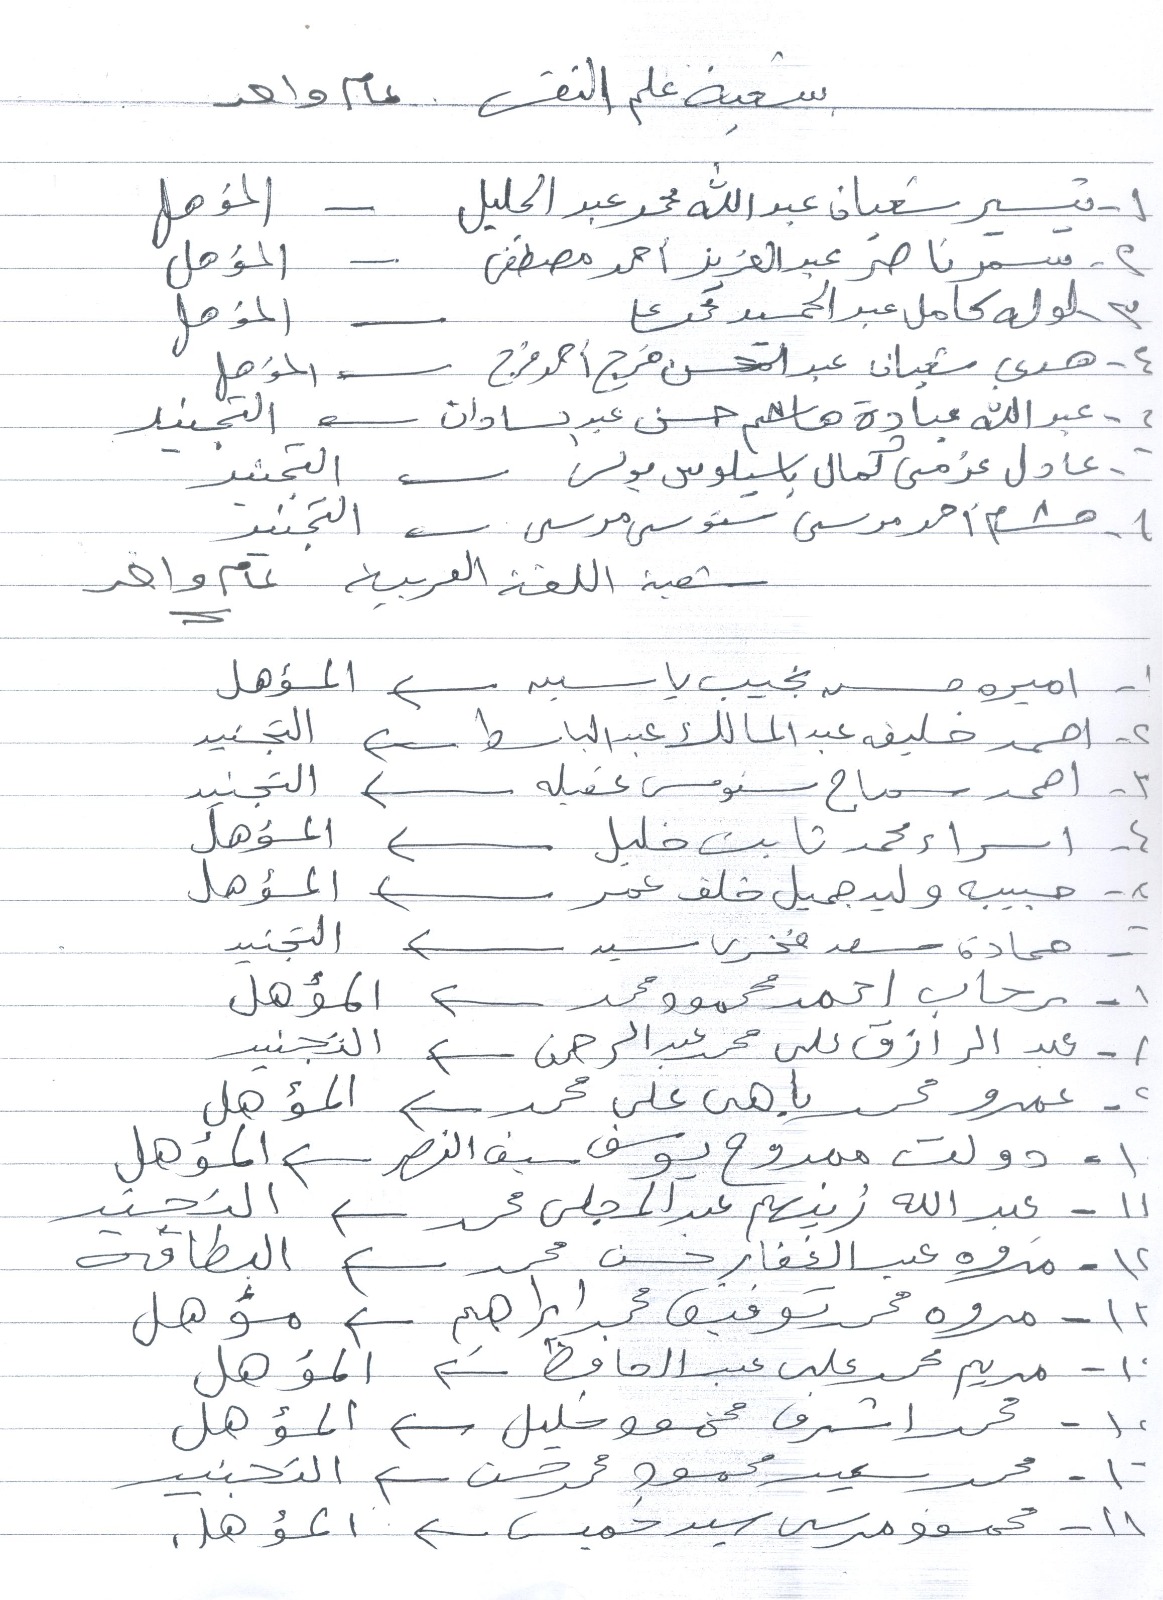 شعبة علم النفس عام واحد
١- تيسير شعبان عبد الله محمد عبد الجليل — المؤهل
٢- سمر ناصر عبد العزيز أحمد مصطفى — المؤهل
٣- لوله كامل عبد الحميد محمد علي — المؤهل
٤- هدى شعبان عبد المحسن فرج أحمد فرج ← المؤهل
٥- عبد الله عبادة هاشم حسن عبد ← التجنيد
٦- عادل عزمى كمال باسيلوس بولس ← التجنيد
٧- هشام أحمد مرسى سنوسى مرسى ← التجنيد
شعبة اللغة العربية عام واحد
١- اميره حسن نجيب ياسين ← المؤهل
٢- احمد خليفه عبد المالك عبد الباسط ← التجنيد
٣- احمد سماح سنوسى عقيله ← التجنيد
٤- اسراء محمد ثابت خليل ← المؤهل
٥- حبيبه وليد جميل خلف عمر ← المؤهل
٦- حمادة سعد فخرى سيد ← التجنيد
٧- رحاب احمد محمود محمد ← المؤهل
٨- عبد الرازق على محمد عبد الرحمن ← التجنيد
٩- عمرو محمد باهى على محمد ← المؤهل
١٠- دولت ممدوح يوسف سيف النصر ← المؤهل
١١- عبد الله زينهم عبد المجلى محمد ← التجنيد
١٢- مروه عبد الغفار حسن محمد ← البطاقة
١٣- مروه محمد توفيق محمد ابراهيم ← مؤهل
١٤- مريم محمد على عبد الحافظ ← المؤهل
١٥- محمد اشرف محمود خليل ← المؤهل
١٦- محمد سعيد محمود محمد حسن ← التجنيد
١٧- محمود مرسى سيد خميس ← المؤهل